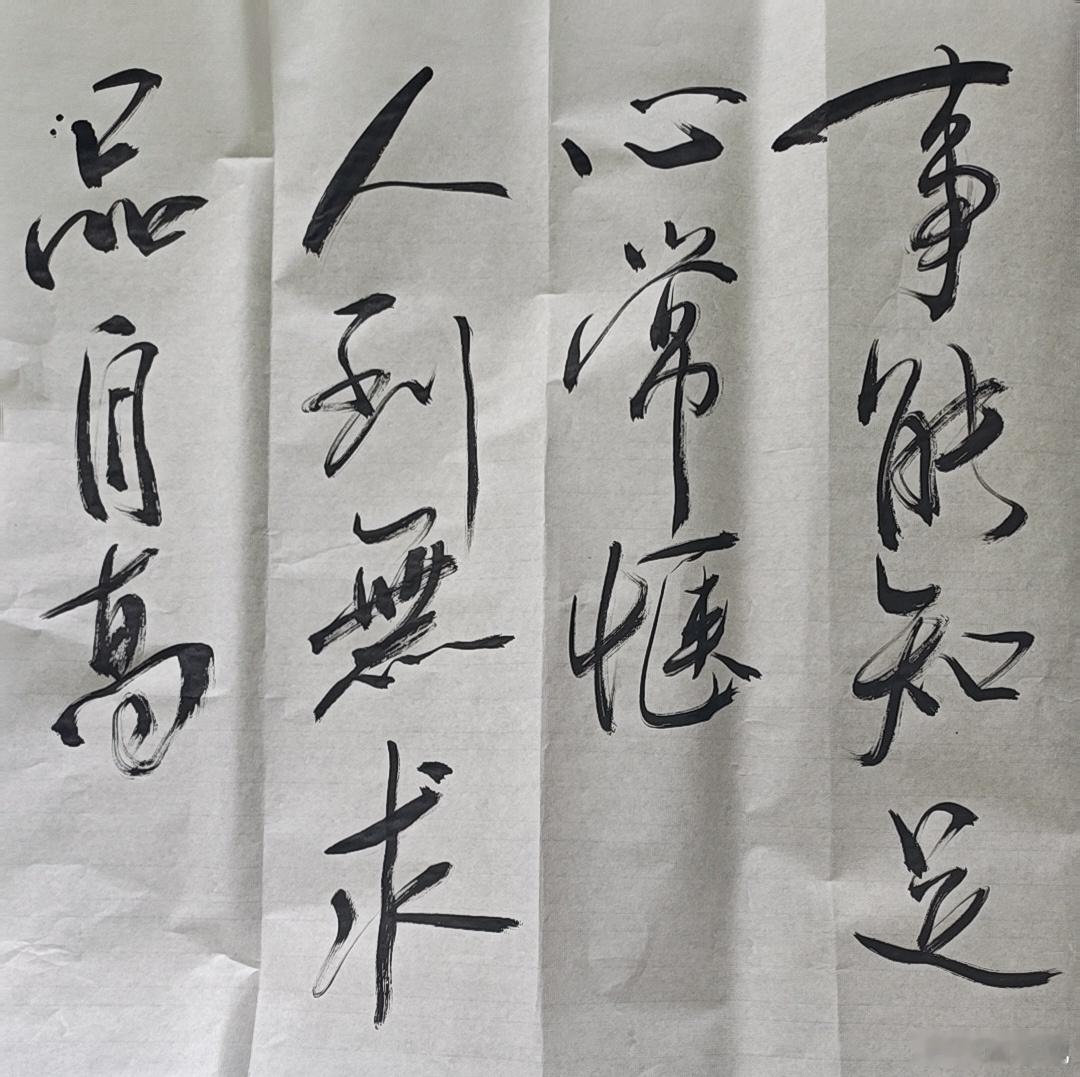 事能知足
心常惬
人到無求
品自高